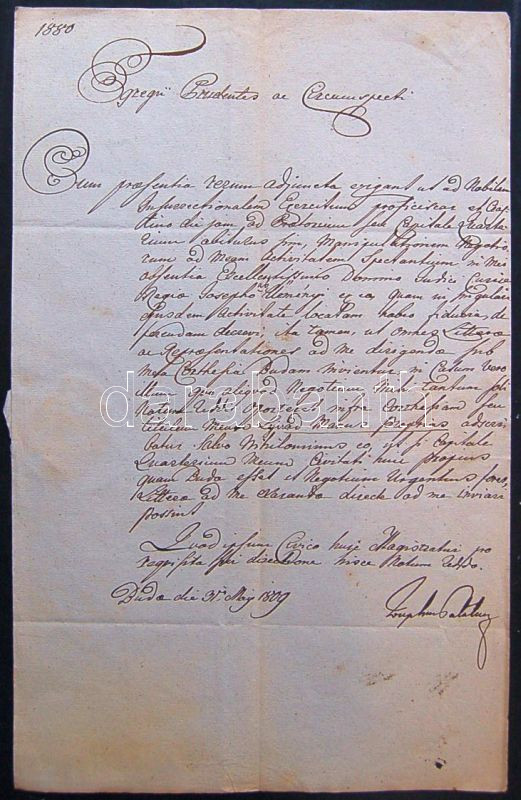 1880
Egregii Prudentes ac Circumspecti
Cum præsentia rerum adjuncta exigant ut ad Nobilem
Insurrectionalem Exercitum proficiscar et
die jam ad Pratorium seu Capitale Quarte-
rium abiturus sim, Manipulationem Negotio-
rum ad Meam Activitatem Spectantium in Mei
absentia Excellentissimo Domino Judici Curiæ
Regiæ Josepho Ürményi ex ea, quam in singulari
ejusdem Activitate locatam habeo fiducia, de-
ferendam decrevi, ita tamen, ut omnes Litteræ
ac Repræsentationes ad me dirigendæ sub
mea Budam invientur in Casum vero
illum, quo aliquod Negotium Mihi tantum
infra seu
titulum Meum
Salvo Nihilominus eo, ut si Capitale
Quarterium Meum Civitati huic propius
quam Buda esset et Negotium Urgentius foret,
Litteræ ad me directe ad me inviari
possint
Quod ipsum Civico huic Magistratui pro
directione hisce Notum reddo.
Budæ die 31ª May 1809
Josephus Palatinus
darabanth